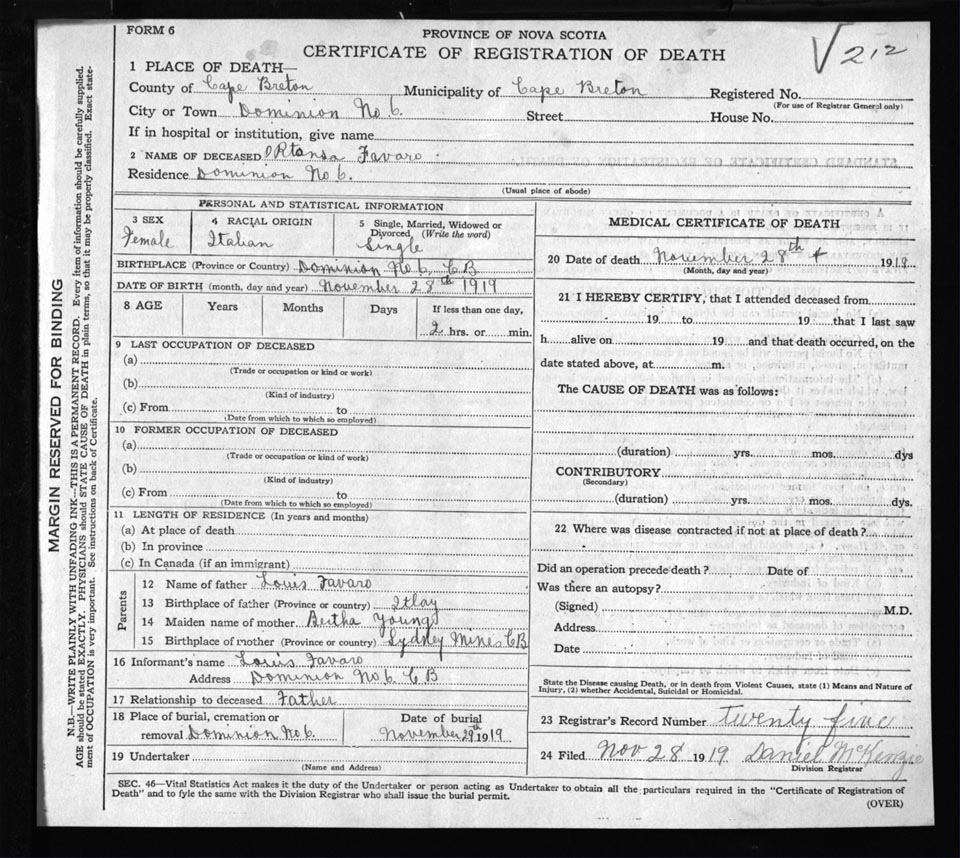 FORM 6
PROVINCE OF NOVA SCOTIA
CERTIFICATE OF REGISTRATION OF DEATH
√212
1 PLACE OF DEATH—
County of Cape Breton Municipality of Cape Breton Registered No.
(For use of Registrar General only)
City or Town Dominion No 6. Street House No.
If in hospital or institution, give name
2 NAME OF DECEASED Favaro
Residence Dominion No 6.
(Usual place of abode)
PERSONAL AND STATISTICAL INFORMATION
3 SEX Female
4 RACIAL ORIGIN Italian
5 Single, Married, Widowed or Divorced, (Write the word) Single
BIRTHPLACE (Province or Country) Dominion No 6. CB
DATE OF BIRTH (month, day and year) November 28th 1919
8 AGE Years Months Days If less than one day,
2 hrs. or min.
9 LAST OCCUPATION OF DECEASED
(a)
(Trade or occupation or kind or work)
(b)
(Kind of industry)
(c) From to
(Date from which to which so employed)
10 FORMER OCCUPATION OF DECEASED
(a)
(Trade or occupation or kind of work)
(b)
(Kind of industry)
(c) From to
(Date from which to which so employed)
11 LENGTH OF RESIDENCE (In years and months)
(a) At place of death
(b) In province
(c) In Canada (if an immigrant)
Parents
12 Name of father Louis Favaro
13 Birthplace of father (Province or country) Itlay
14 Maiden name of mother Bertha Young
15 Birthplace of mother (Province or country) Sydney Mines CB
16 Informant's name Louis Favaro
Address Dominion No 6. CB
17 Relationship to deceased Father
18 Place of burial, cremation or removal Dominion No 6.
Date of burial
November 29th 1919
19 Undertaker
(Name and Address)
MEDICAL CERTIFICATE OF DEATH
20 Date of death November 28th 1919
(Month, day and year)
21 I HEREBY CERTIFY, that I attended deceased from
19 to 19 that I last saw
h alive on 19 and that death occurred, on the
date stated above, at m.
The CAUSE OF DEATH was as follows:
(duration) yrs. mos. dys
CONTRIBUTORY
(Secondary)
(duration) yrs. mos. dys.
22 Where was disease contracted if not at place of death?
Did an operation precede death? Date of
Was there an autopsy?
(Signed) M.D.
Address
Date
State the Disease causing Death, or in death from Violent Causes, state (1) Means and Nature of
Injury, (2) whether Accidental, Suicidal or Homicidal.
23 Registrar's Record Number twenty five
24 Filed Nov 28 1919 Daniel McKenzie
Division Registrar
SEC. 46—Vital Statistics Act makes it the duty of the Undertaker or person acting as Undertaker to obtain all the particulars required in the "Certificate of Registration of
Death" and to fyle the same with the Division Registrar who shall issue the burial permit.
(OVER)
MARGIN RESERVED FOR BINDING
N.B.—WRITE PLAINLY WITH UNFADING INK—THIS IS A PERMANENT RECORD. Every item of information should be carefully supplied.
AGE should be stated EXACTLY. PHYSICIANS should STATE CAUSE OF DEATH in plain terms, so that it may be properly classified. Exact state-
ment of OCCUPATION is very important. See instructions on back of Certificate.